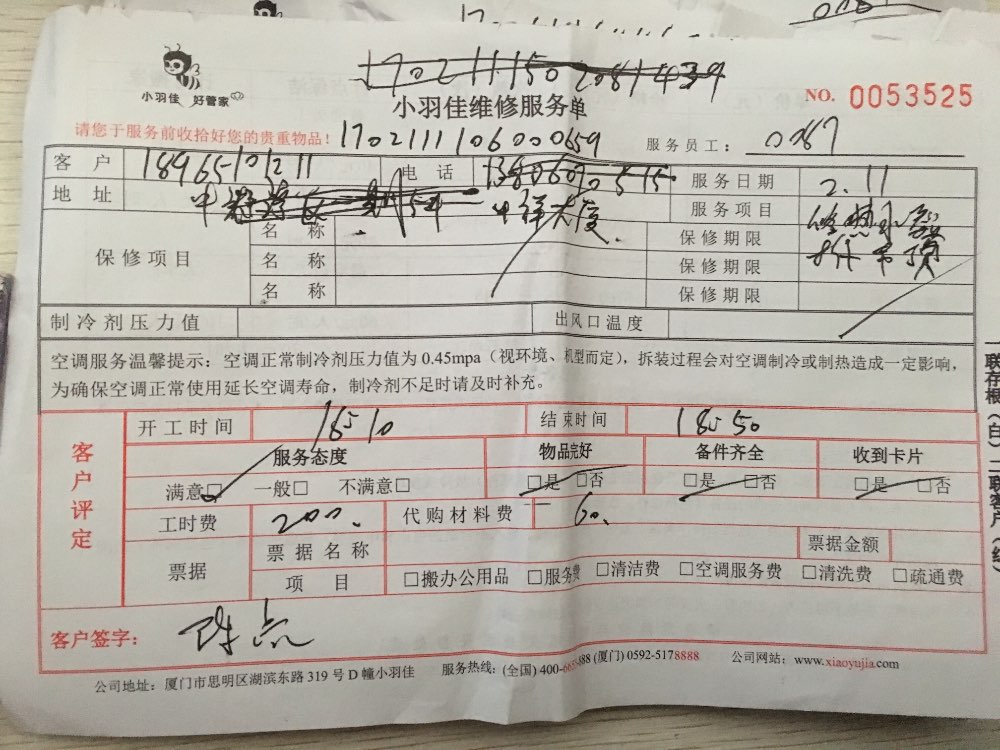 小羽佳 好管家
17021111502081439
小羽佳维修服务单
NO. 0053525
请您于服务前收拾好您的贵重物品！
1702111106000659
服务员工：0067
客户 18965101211 电话 服务日期 2.11
地址 中祥大厦. 服务项目
保修项目
名称 保修期限
名称 保修期限
名称 保修期限
制冷剂压力值 出风口温度
空调服务温馨提示：空调正常制冷剂压力值为 0.45mpa（视环境、机型而定），拆装过程会对空调制冷或制热造成一定影响，
为确保空调正常使用延长空调寿命，制冷剂不足时请及时补充。
客户评定
开工时间 18:10 结束时间 18:50
服务态度 物品完好 备件齐全 收到卡片
满意□ 一般□ 不满意□ □是 □否 □是 □否 □是 □否
工时费 200. 代购材料费 60.
票据 票据名称 票据金额
项目 □搬办公用品 □服务费 □清洁费 □空调服务费 □清洗费 □疏通费
客户签字：
公司地址：厦门市思明区湖滨东路 319 号 D 幢小羽佳 服务热线：(全国) 400-6655888 (厦门) 0592-5178888 公司网站：www.xiaoyujia.com
一联存根（白）二联客户（红）